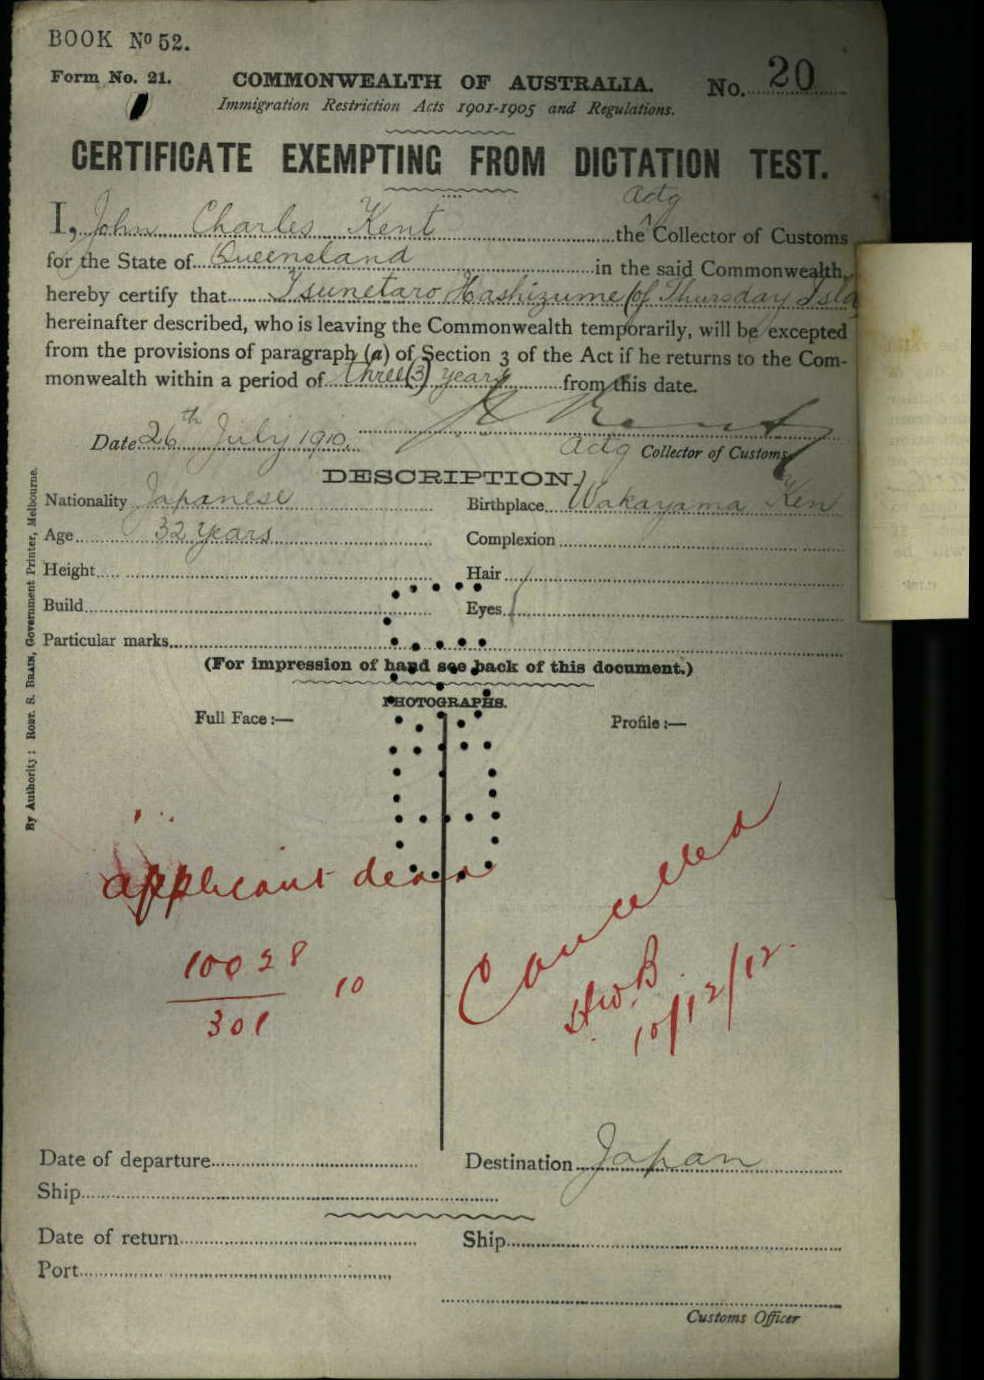 BOOK No 52.
Form No. 21.
COMMONWEALTH OF AUSTRALIA.
No. 20
Immigration Restriction Acts 1901-1905 and Regulations.
CERTIFICATE EXEMPTING FROM DICTATION TEST.
adtg
I, John Charles Kent the Collector of Customs
for the State of Queensland in the said Commonwealth,
hereby certify that Tsunetaro Hashizume (of Thursday Isla
hereinafter described, who is leaving the Commonwealth temporarily, will be excepted
from the provisions of paragraph (a) of Section 3 of the Act if he returns to the Com-
monwealth within a period of three (3) years from this date.
Date 26th July 1910.
J C Kent
adtg Collector of Customs
DESCRIPTION.
Nationality Japanese
Birthplace Wakayama Ken
Age 32 years
Complexion
Height
Hair
Build
Eyes
Particular marks
(For impression of hand see back of this document.)
PHOTOGRAPHS.
Full Face:—
Profile:—
applicant dead
Cancelled
H.W.B.
10/12/12.
10028
301
10
Date of departure
Destination Japan
Ship
Date of return
Ship
Port
Customs Officer
By Authority: ROBT. S. BRAIN, Government Printer, Melbourne.